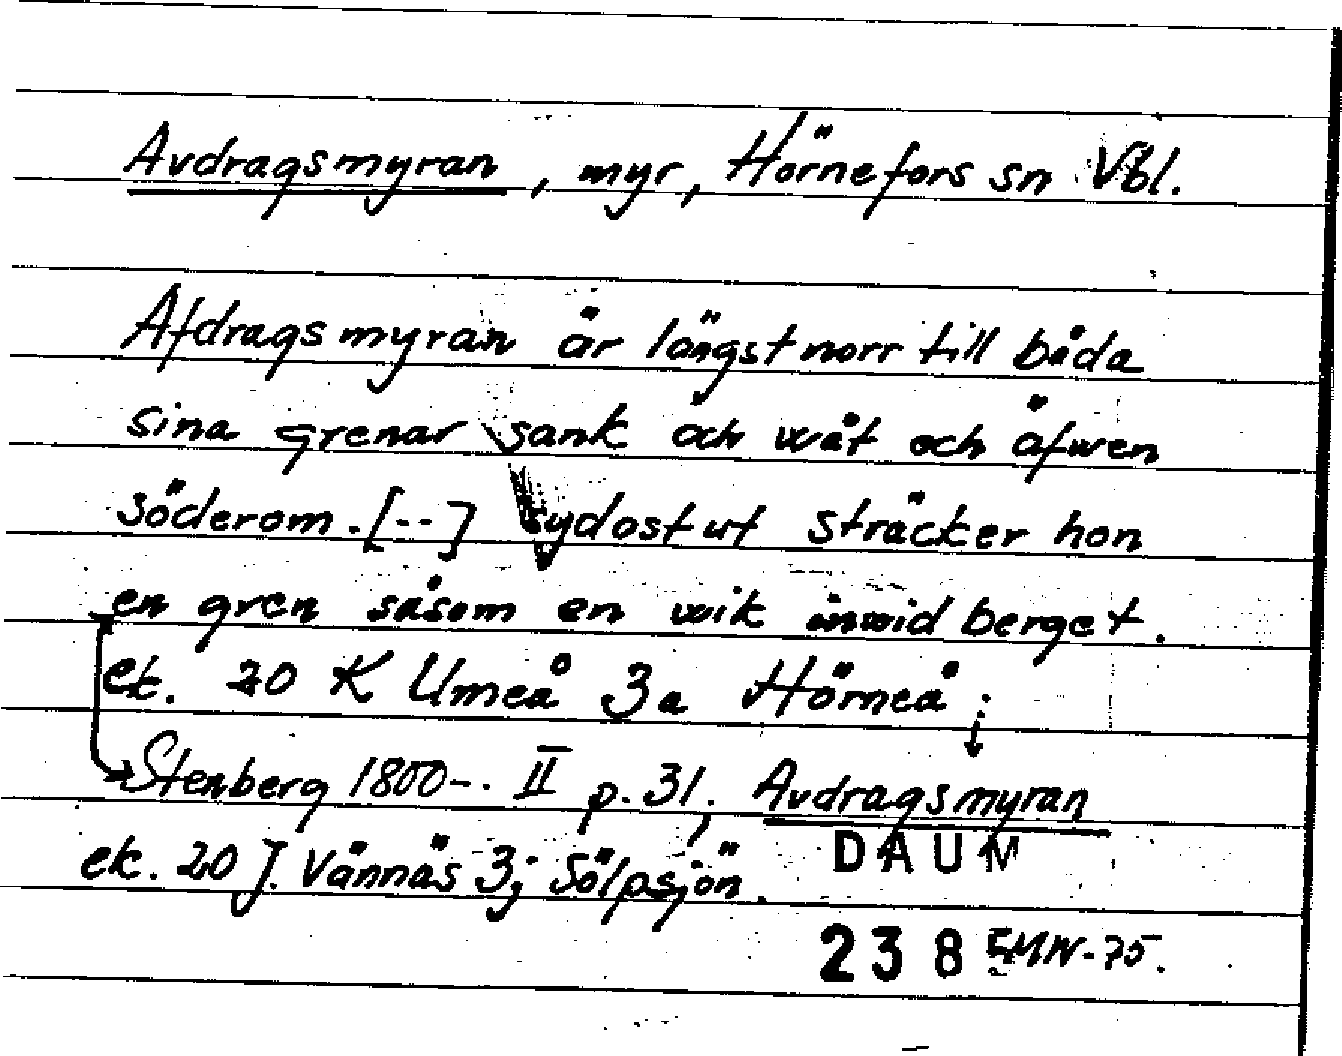 Avdragsmyran, myr, Hörnefors sn Vbl.
Afdragsmyran är längst norr till båda
sina grenar sank och wåt och äfwen
söderom. [--] sydost ut sträcker hon
en gren såsom en wik inwid berget.
ek. 20 K Umeå 3a Hörneå;
Stenberg 1800-. II p. 31. Avdragsmyran
ek. 20 J. Vännäs 3j Sölpsjön.
DAUM
238 EMN-75.